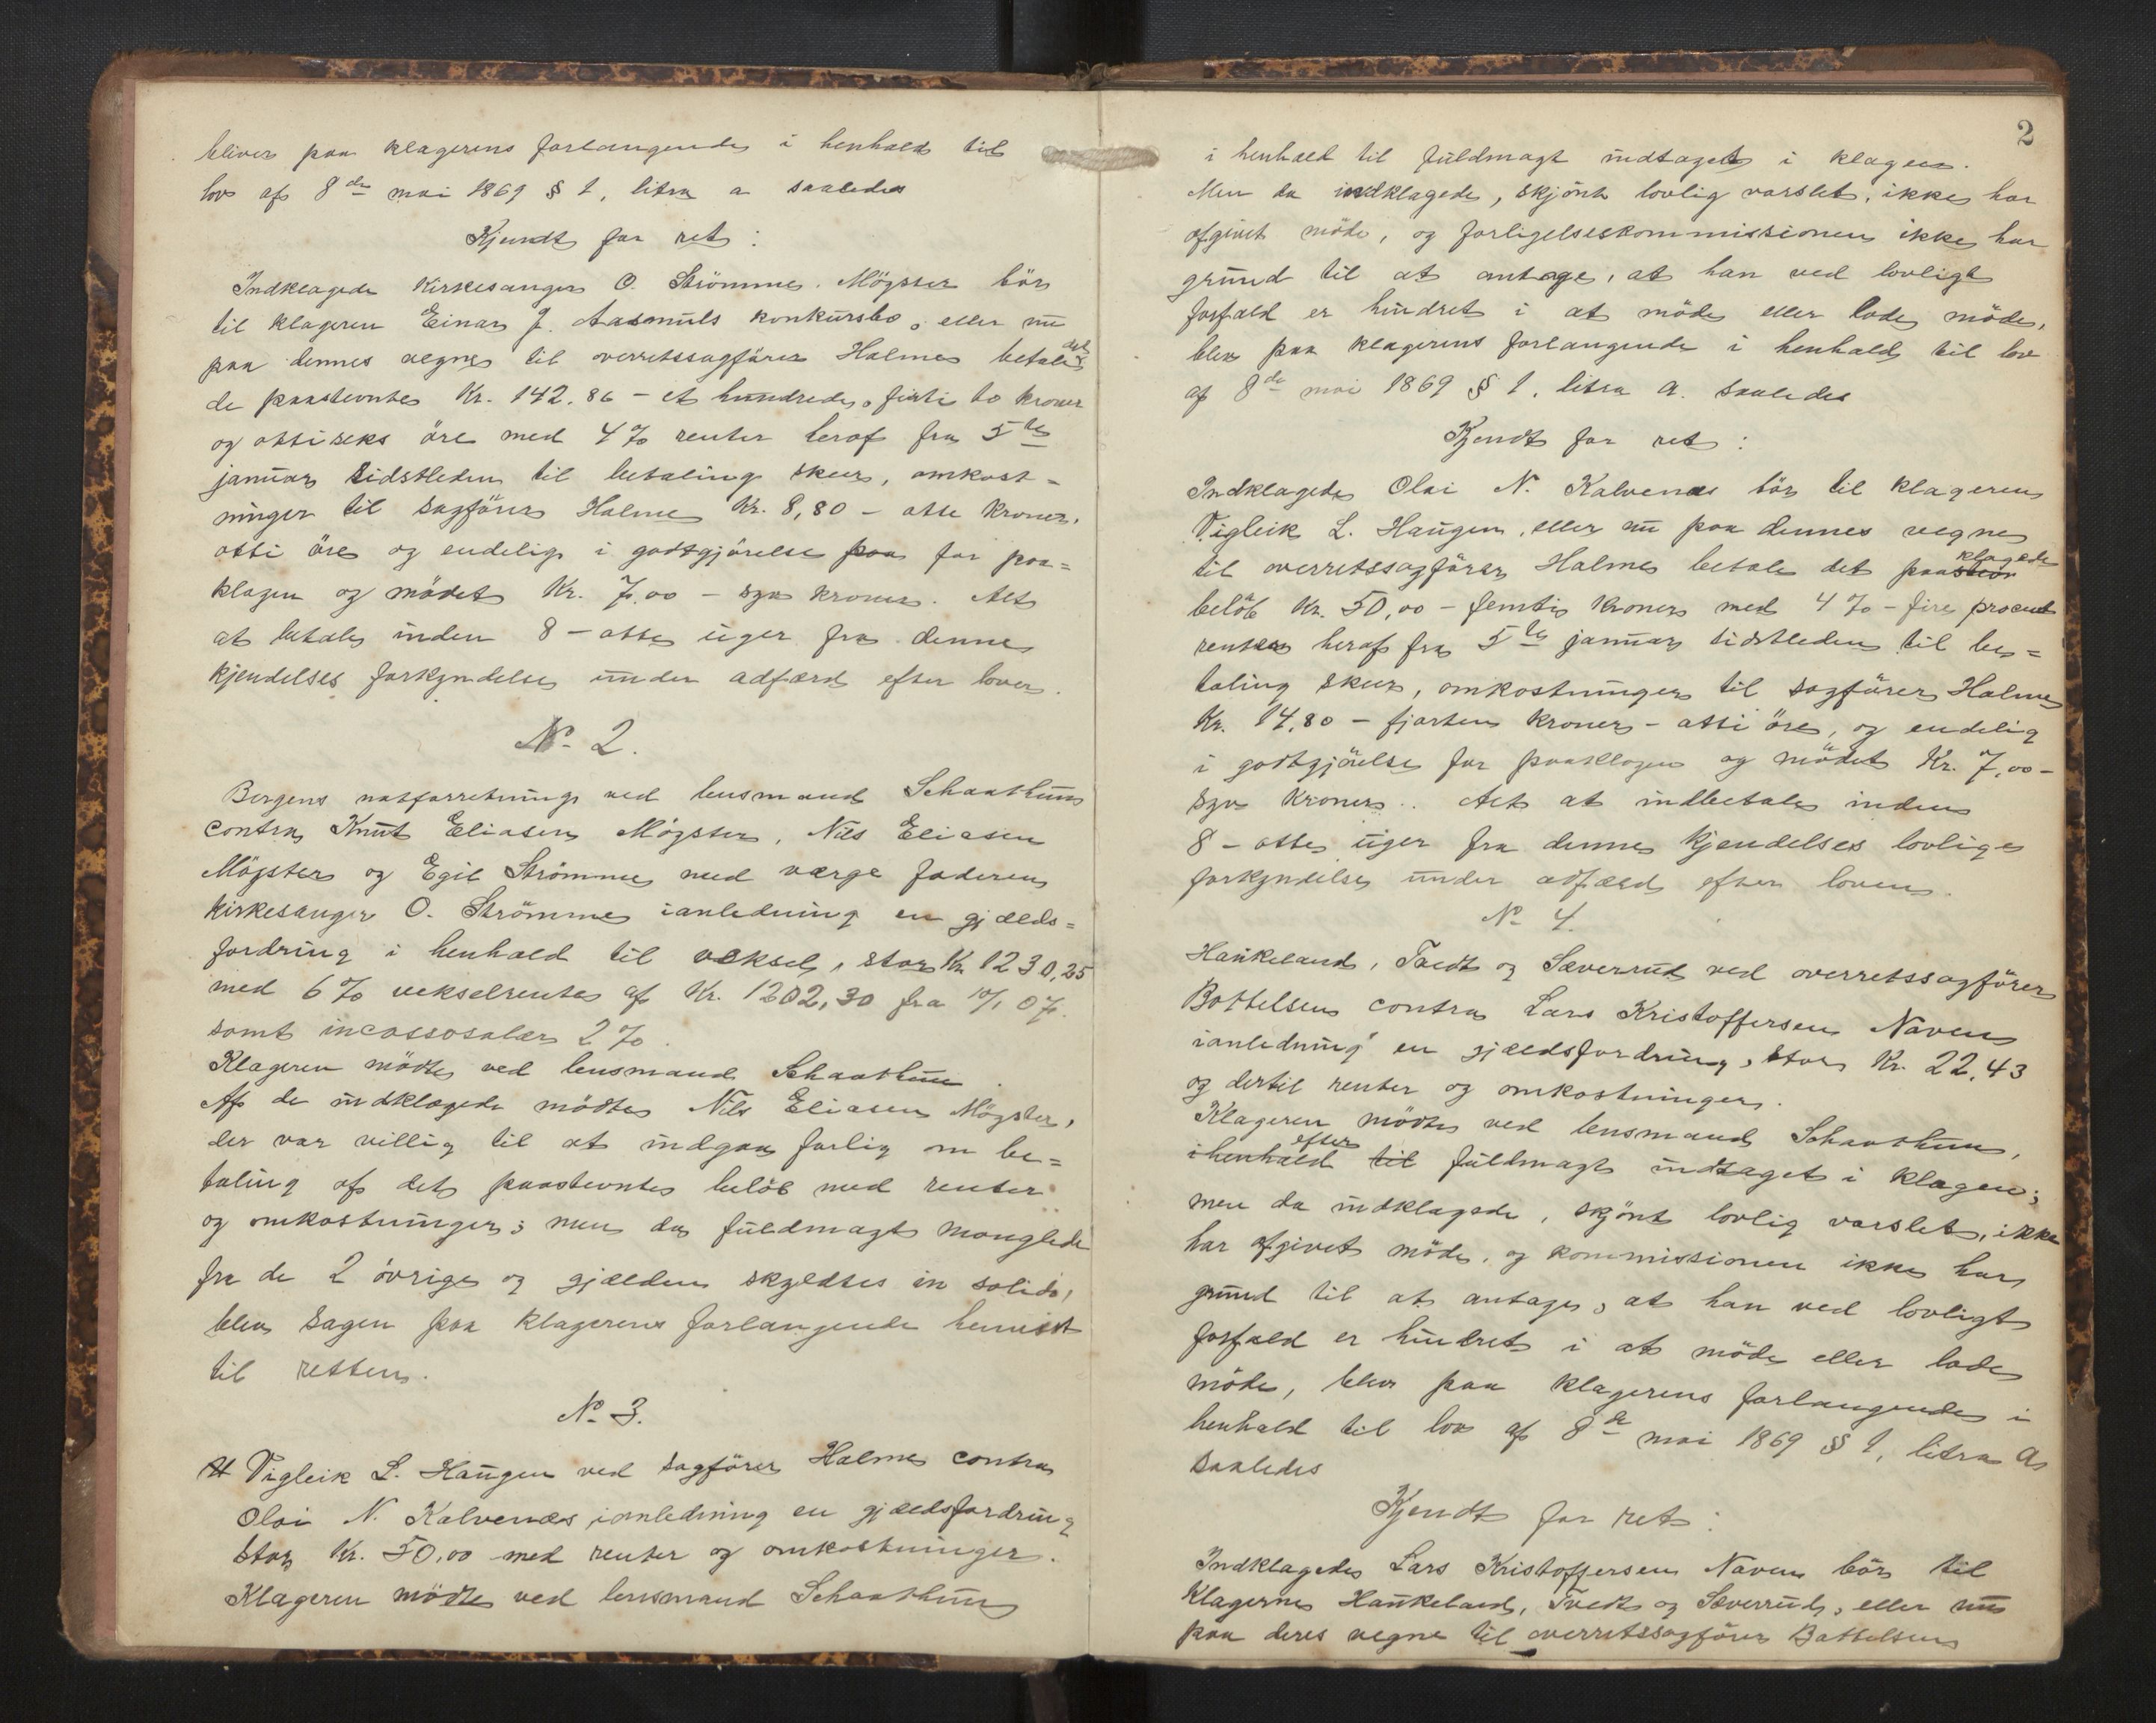 bliver paa klagerens forlangende i henhold til
lov af 8de mai 1869 § 1, litra a saaledes
Kjendt for ret:
Indklagede Kirkesanger O. Strömme. Mögster bör
til klageren Einar J. Aasmuls konkursbo, eller nu
paa dennes vegne til overretssagförer Holme betale det
de paastevnte Kr. 142.86 - et hundrede, firti to kroner
og ottiseks öre med 4% renter heraf fra 5te
januar sidstleden til betaling sker, omkost-
ninger til sagförer Holme Kr. 8,80 - otte kroner,
otti öre og endelig i godtgjörelse paa for paa=
klagen og mödet Kr. 7,00 - syv kroner. Alt
at betale inden 8 - otte uger fra denne
kjendelses forkyndelse under adfærd efter loven.
No. 2.
Bergens notforretning ved lensmand Schaathun
contra Knut Eliasen Mögster, Nils Eliasen
Mögster og Egil Strömme med værge faderen
kirkesanger O. Strömme ianledning en gjælds=
fordring i henhold til veksel, stor Kr. 1230,25
med 6% vekselrente af Kr. 1202,30 fra 10/1 07.
samt incassosalær 2%.
Klageren mödte ved lensmand Schaathun.
Af de indklagede mödte Nils Eliasen Mögster,
der var villig til at indgaa forlig om be=
taling af det paastevnte belöb med renter
og omkostninger; men da fuldmagt manglede
fra de 2 övrige og gjælden skyldtes in solido,
blev sagen paa klagerens forlangende henvist
til retten.
No. 3.
Vigleik L. Haugen ved sagförer Holme contra
Olai N. Kalvenæs ianledning en gjældsfordring
stor Kr. 50,00 med renter og omkostninger.
Klageren mödte ved lensmand Schaathun
2
i henhold til fuldmagt indtaget i klagen.
Men da indklagede, skjönt lovlig varslet, ikke har
afgivet möde, og forligelseskommissionen ikke har
grund til at antage, at han ved lovligt
forfald er hindret i at möde eller lade möde,
blev paa klagerens forlangende i henhold til lov
af 8de mai 1869 § 1, litra a. saaledes
Kjendt for ret:
Indklagede Olai N. Kalvenæs bör til klageren
Vigleik L. Haugen, eller nu paa dennes vegne
til overretssagförer Holme betale det paaklagede
belöb Kr. 50,00 - femti kroner med 4% - fire procent
renter heraf fra 5te januar sidstleden til be=
taling sker, omkostninger til sagförer Holme
Kr. 14,80 - fjorten kroner - otti öre, og endelig
i godtgjörelse for paaklagen og mödet Kr. 7,00 -
syv kroner. Alt at indbetale inden
8 - otte uger fra dennes kjendelses lovlige
forkyndelse under adfærd efter loven.
No 4.
Haukeland, Tvedt og Sæverud ved overretssagförer
Bottelsen contra Lars Kristoffersen Naven
ianledning en gjældsfordring, stor Kr. 22,43
og dertil renter og omkostninger.
Klageren mödte ved lensmand Schaathun,
ihenhold til efter fuldmagt indtaget i klagen;
men da indklagede, skjönt lovlig varslet, ikke
har afgivet möde, og kommissionen ikke har
grund til at antage, at han ved lovligt
forfald er hindret i at möde eller lade
möde, blev paa klagerens forlangende i
henhold til lov af 8de mai 1869 § 1, litra a
saaledes
Kjendt for ret:
Indklagede Lars Kristoffersen Naven bör til
Klagerne Haukeland, Tvedt og Sæverud, eller nu
paa deres vegne til overretssagförer Bottelsen